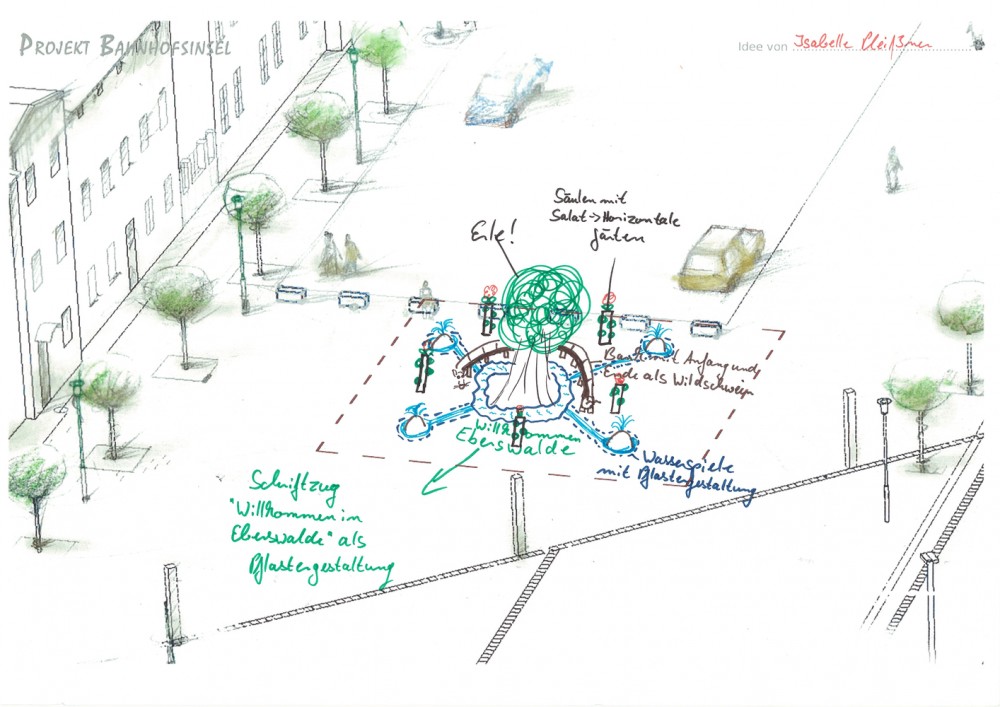 PROJEKT BAHNHOFSINSEL
Idee von Isabelle
Säulen mit
Salat -> Horizontale
Gärten
Erle!
Bank mit Anfang und
Ende als Wildschwein
Willkommen
Eberswalde
Wasserspiele
mit Pflastergestaltung
Schriftzug
"Willkommen in
Eberswalde" als
Pflastergestaltung